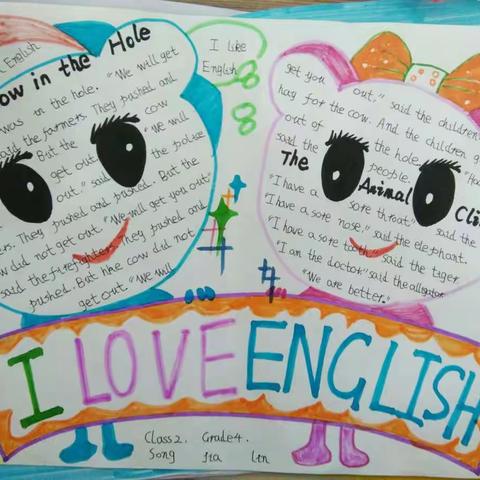 English
ow in the Hole
was in the hole. "We will get
said the farmers. They pushed and
But the cow
get out. "We will
out." said the police
rs. They pushed and pushed. But the
w did not get out. "We will get you out"
said the firefighters. They pushed and
pushed. But hhe cow did not
get out. "We will
I like
English
get you out." said the children.
hay for the cow. And the children g
out of the hole.
said the people. "Ho
The Animal Cli
"I have a sore throat." said the
"I have a sore nose," said the elephant.
"I have a sore tooth, said the tiger.
"I am the doctor" said the alligator.
"We are better."
I LOVE ENGLISH
Class2. Grade4.
Song Jia Lin